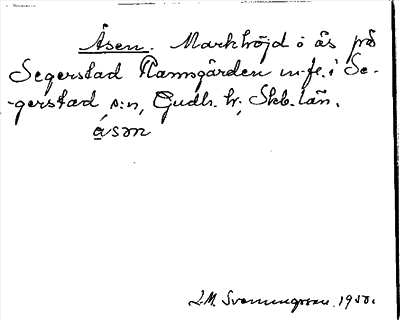 Åsen. Markhöjd o ås på
Segerstad Hamngården m.fl. i Se-
-gerstad s:n, Gudh. hr, Skb. län.
åsən
J.M. Svenungsson. 1950.